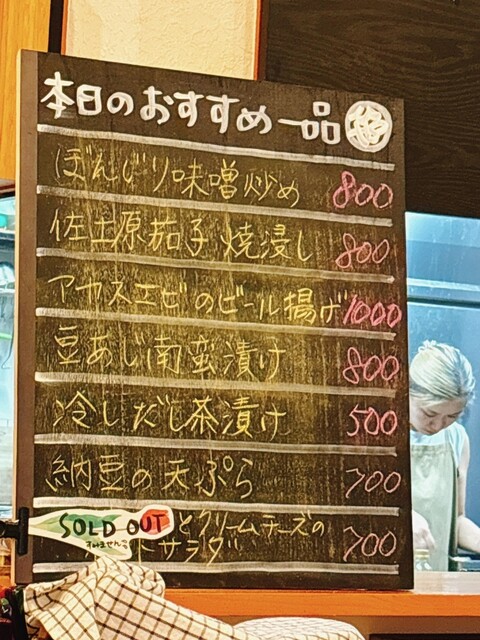 本日のおすすめ一品
ぼんじり味噌炒め 800
佐土原茄子焼浸し 800
アカスエビのビール揚げ 1000
豆あじ南蛮漬け 800
冷しだし茶漬け 500
納豆の天ぷら 700
SOLD OUT
すみません
とクリームチーズの
サラダ 700